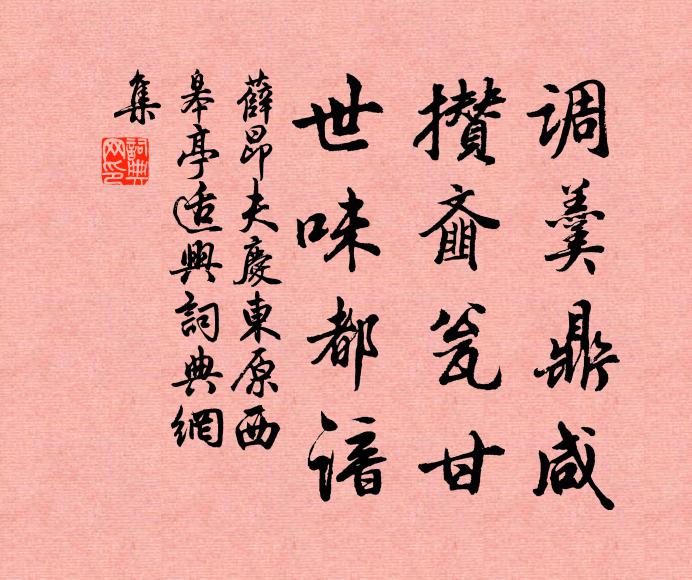 调羹鼎咸
攒齑瓮甘
世味都谙
薛昂夫慶東原西
皋亭适興詞典網
集
詞典網印